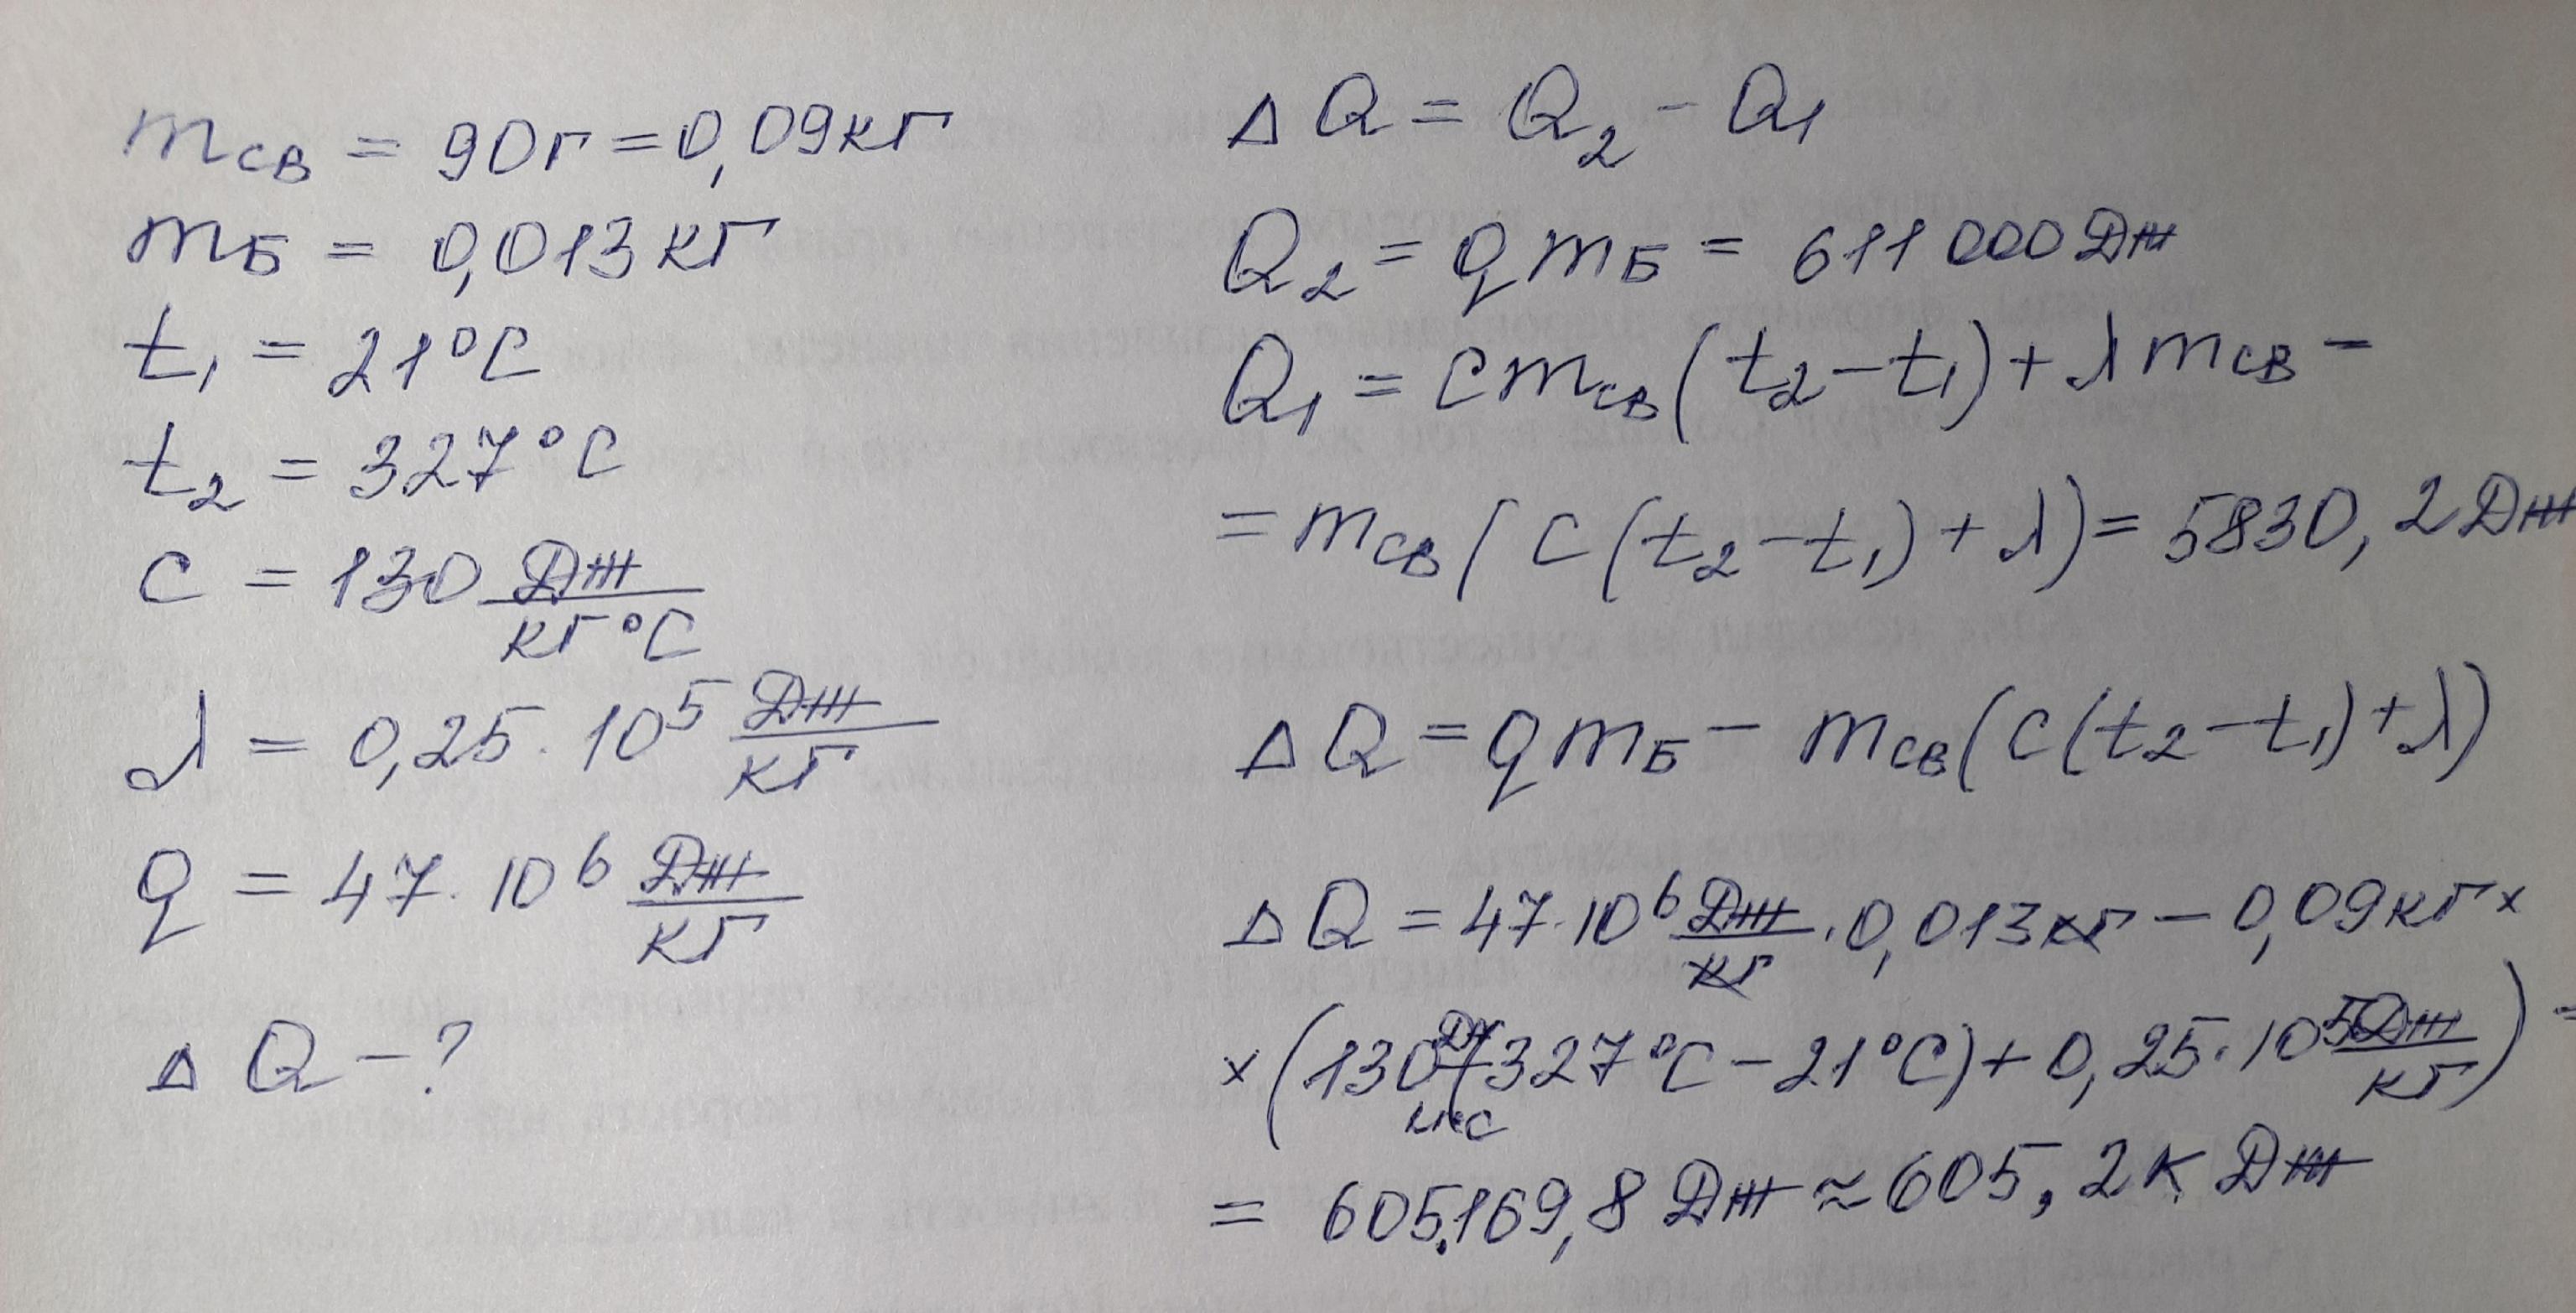 mсв = 90г = 0,09кг
mБ = 0,013кг
t₁ = 21°C
t₂ = 327°C
c = 130 Дж/кг°C
λ = 0,25·10⁵ Дж/кг
q = 47·10⁶ Дж/кг
Δ Q – ?
Δ Q = Q₂ – Q₁
Q₂ = q mБ = 611 000 Дж
Q₁ = c mсв (t₂ – t₁) + λ mсв –
= mсв ( c (t₂ – t₁) + λ) = 5830, 2 Дж
Δ Q = q mБ – mсв (c (t₂ – t₁) + λ)
Δ Q = 47·10⁶ Дж/кг · 0,013кг – 0,09кг ×
× (130 Дж/кг°C (327°C – 21°C) + 0,25·10⁵ Дж/кг) =
= 605169,8 Дж ≈ 605,2 кДж